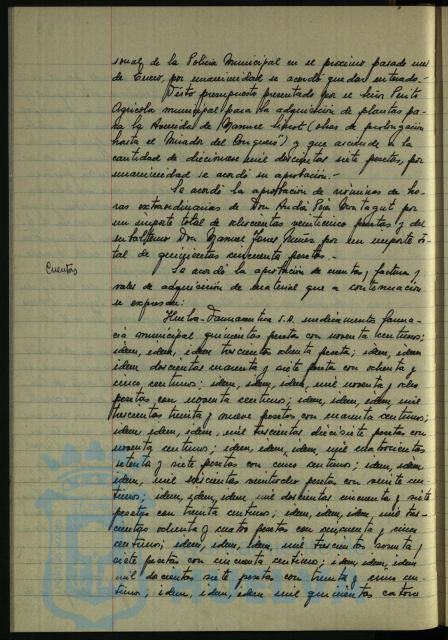 sonal de la Policia Municipal en el proximo pasado mes
de Enero, por unanimidad se acordó quedar enterado.-
Visto presupuesto presentado por el Señor Perito
Agricola municipal para la adquisición de plantas pa-
ra la Avenida de Manuel Siurot (obras de prolongación
hasta el Mirador del Conquero) y que asciende a la
cantidad de diecinueve mil doscientas siete pesetas, por
unanimidad se acordó su aprobación.-
Se acordó la aprobación de nóminas de ho-
ras extraordinarias de Don Andrés
un importe total de veinticinco pesetas y del
subalterno Don Manuel por un importe to-
tal de quinientas cincuenta pesetas.-
Cuentas
Se acordó la aprobación de cuentas, facturas y
vales de adquisición de material que a continuación
se expresan:
Huelva-Farmaceutica S.A. medicamentos farma-
cia municipal quinientas pesetas con noventa centimos;
idem, idem, idem trescientas ochenta pesetas; idem, idem
idem doscientas y siete pesetas con ochenta y
cinco centimos; idem, idem, idem, mil noventa y ocho
pesetas con noventa centimos; idem, idem, idem mil
trescientas treinta y nueve pesetas con centimos;
idem idem, idem, mil trescientas diecisiete pesetas con
noventa centimos; idem, idem, idem, mil cuatrocientas
setenta y siete pesetas con cinco centimos; idem, idem,
idem, mil pesetas con veinte cen-
timos; idem, idem, idem, mil doscientas cincuenta y siete
pesetas con treinta centimos; idem, idem, idem, mil tres-
cientas ochenta y cuatro pesetas con cincuenta y cinco
centimos; idem, idem, idem, mil trescientas y
siete pesetas con cincuenta centimos; idem, idem, idem
mil doscientas siete pesetas con treinta y cinco cen-
timos; idem, idem, idem mil quinientas catorce